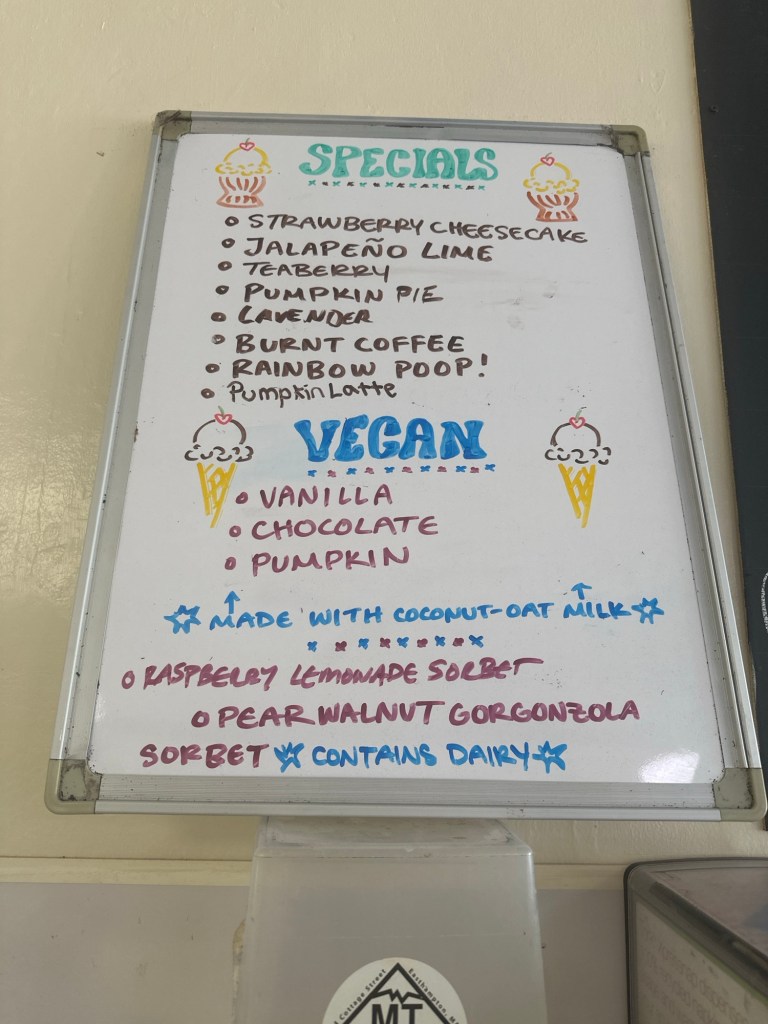 SPECIALS
STRAWBERRY CHEESECAKE
JALAPEÑO LIME
TEABERRY
PUMPKIN PIE
LAVENDER
BURNT COFFEE
RAINBOW POOP!
Pumpkin Latte
VEGAN
VANILLA
CHOCOLATE
PUMPKIN
MADE WITH COCONUT-OAT MILK
RASPBERRY LEMONADE SORBET
PEAR WALNUT GORGONZOLA
SORBET CONTAINS DAIRY
Cottage Street Easthampton,
MT